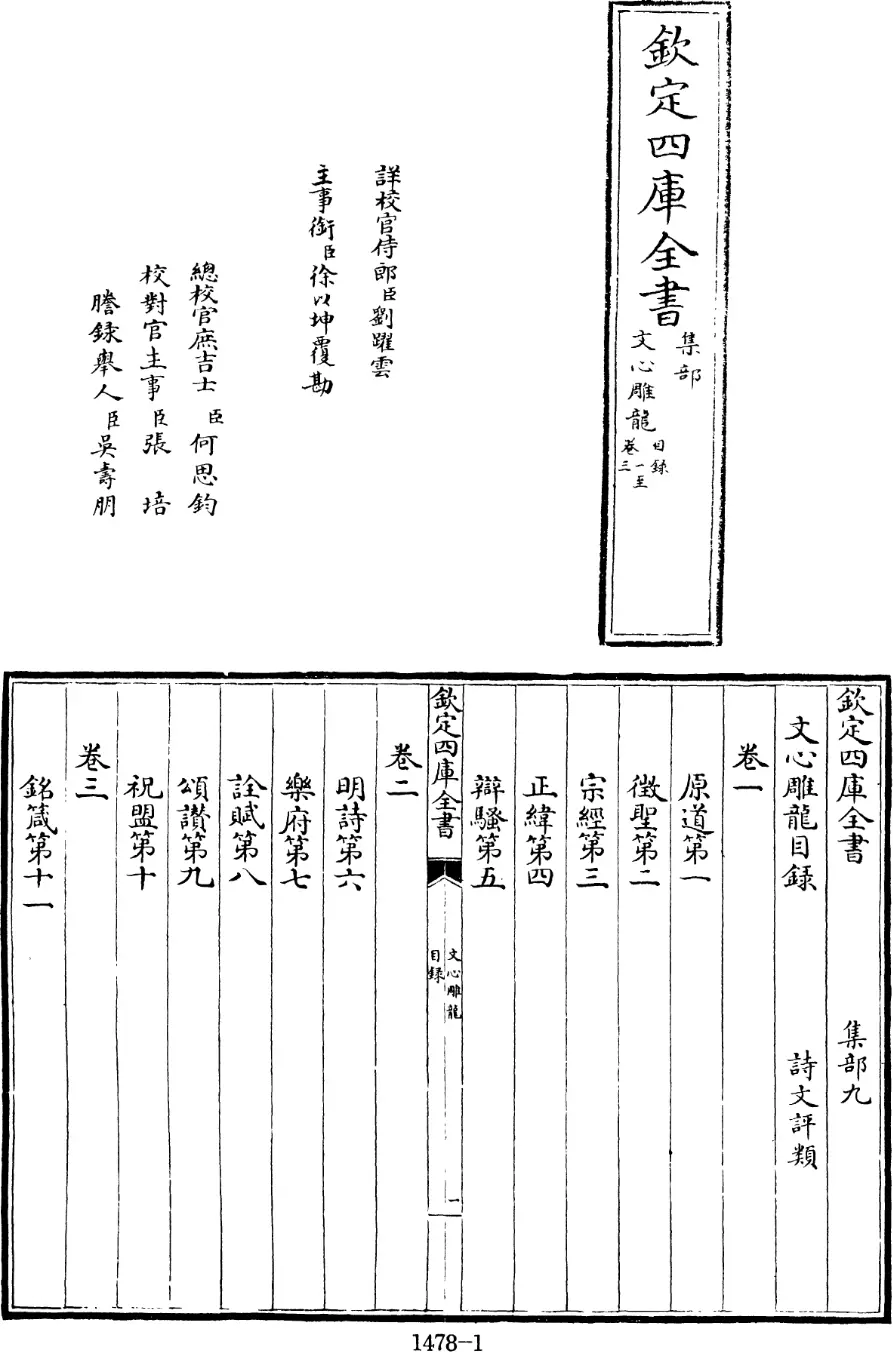 欽定四庫全書
集部
文心雕龍
目錄
卷一至
三
詳校官侍郎臣劉躍雲
主事銜臣徐以坤覆勘
總校官庶吉士臣何思鈞
校對官主事臣張培
謄録舉人臣吳壽朋
欽定四庫全書 集部九
文心雕龍目録 詩文評類
卷一
原道第一
徴聖第二
宗經第三
正緯第四
辯騷第五
欽定四庫全書
文心雕龍
目録
一
卷二
明詩第六
樂府第七
詮賦第八
頌讃第九
祝盟第十
卷三
銘箴第十一
1478-1